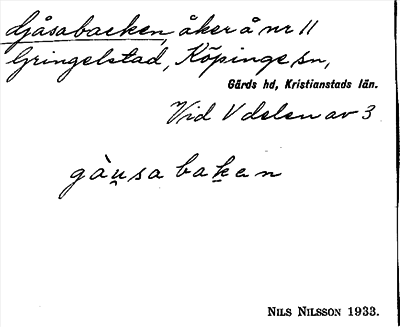 Gåsabacken, åker å nr 11
Gringelstad, Köpinge sn,
Gärds hd, Kristianstads län.
Vid V delen av 3
gàu̯sa baḵen
NILS NILSSON 1933.